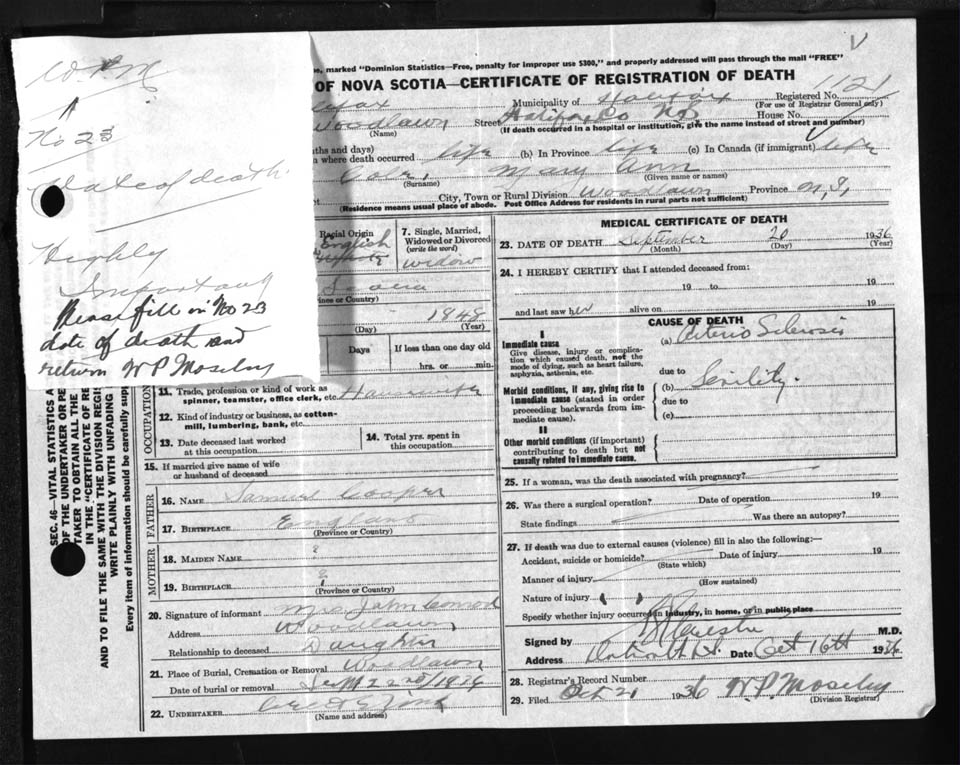 W. P. M
No 23
Date of death.
Highly
Important
Please fill in No 23
date of death and
return W P Moseley
me, marked "Dominion Statistics—Free, penalty for improper use $300," and properly addressed will pass through the mail "FREE"
OF NOVA SCOTIA—CERTIFICATE OF REGISTRATION OF DEATH
Registered No. 1121
(For use of Registrar General only)
Municipality of Halifax
Woodlawn Street Halifax Co N.S. House No.
(Name) (If death occurred in a hospital or institution, give the name instead of street and number)
nths and days)
on where death occurred life (b) In Province life (c) In Canada (if immigrant) life
Mary Ann
(Surname) (Given name or names)
City, Town or Rural Division Woodlawn Province N.S.
(Residence means usual place of abode. Post Office Address for residents in rural parts not sufficient)
Racial Origin
English
7. Single, Married, Widowed or Divorced
(write the word)
Widow
ince or Country)
1848
(Day) (Year)
Days If less than one day old
hrs. or min.
OCCUPATION
11. Trade, profession or kind of work as
spinner, teamster, office clerk, etc. Housewife
12. Kind of industry or business, as cotton-
mill, lumbering, bank, etc.
13. Date deceased last worked
at this occupation
14. Total yrs. spent in
this occupation
15. If married give name of wife
or husband of deceased
FATHER
16. NAME Samuel Cooper
17. BIRTHPLACE England
(Province or Country)
MOTHER
18. MAIDEN NAME ?
19. BIRTHPLACE ?
(Province or Country)
20. Signature of informant Mrs. John Conrod
Address Woodlawn
Relationship to deceased Daughter
21. Place of Burial, Cremation or Removal Woodlawn
Date of burial or removal Sept 22nd/1936
22. UNDERTAKER
(Name and address)
MEDICAL CERTIFICATE OF DEATH
23. DATE OF DEATH September 20 1936
(Month) (Day) (Year)
24. I HEREBY CERTIFY that I attended deceased from:
19 to 19
and last saw her alive on 19
CAUSE OF DEATH
I
Immediate cause
Give disease, injury or complica-
tion which caused death, not the
mode of dying, such as heart failure,
asphyxia, asthenia, etc.
(a) Arterio Sclerosis
due to
Morbid conditions, if any, giving rise to
immediate cause (stated in order
proceeding backwards from im-
mediate cause).
(b) Senility.
due to
(c)
II
Other morbid conditions (if important)
contributing to death but not
causally related to immediate cause.
25. If a woman, was the death associated with pregnancy?
26. Was there a surgical operation? Date of operation 19
State findings Was there an autopsy?
27. If death was due to external causes (violence) fill in also the following:—
Accident, suicide or homicide? Date of injury 19
(State which)
Manner of injury
(How sustained)
Nature of injury
Specify whether injury occurred in industry, in home, or in public place
Signed by M.D.
Address Date Oct 16th 1936
28. Registrar's Record Number
29. Filed Oct 21 1936 W P Moseley
(Division Registrar)
SEC. 46—VITAL STATISTICS A
OF THE UNDERTAKER OR PE
TAKER TO OBTAIN ALL THE
IN THE "CERTIFICATE OF RE
AND TO FILE THE SAME WITH THE DIVISION REGIS
WRITE PLAINLY WITH UNFADING
Every item of information should be carefully supp